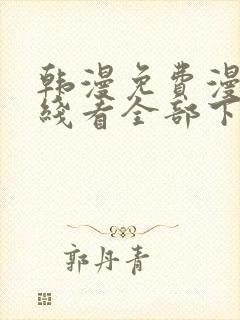 韩漫免費漫
綫看全部下
郭丹青